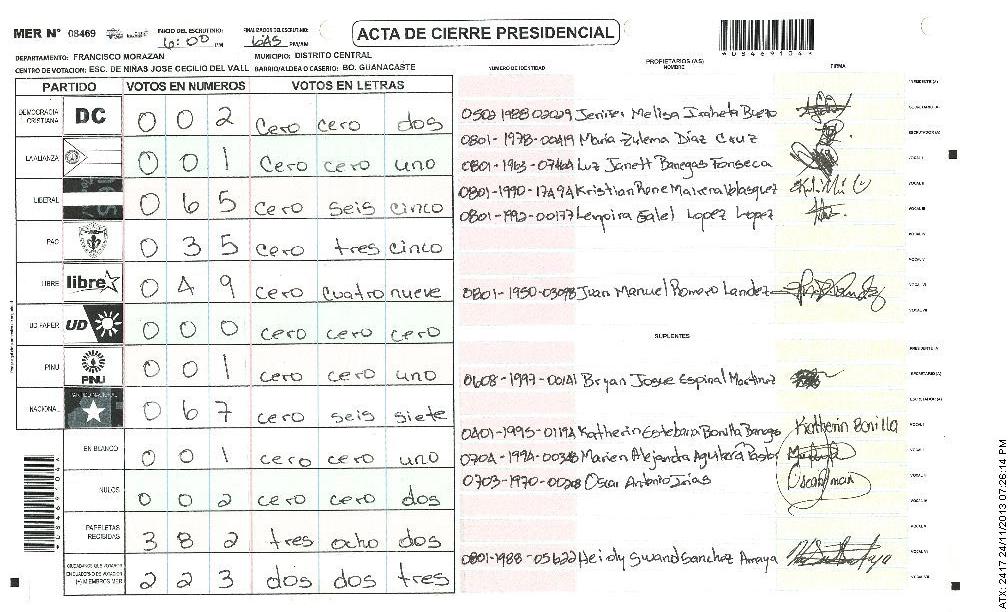 MER N° 08469 INICIO DEL ESCRUTINIO: 6:00 PM FINALIZACION DEL ESCRUTINIO: PM/AM
ACTA DE CIERRE PRESIDENCIAL
DEPARTAMENTO: FRANCISCO MORAZAN MUNICIPIO: DISTRITO CENTRAL
CENTRO DE VOTACION: ESC. DE NIÑAS JOSE CECILIO DEL VALL BARRIO/ALDEA O CASERIO: BO. GUANACASTE
PARTIDO VOTOS EN NUMEROS VOTOS EN LETRAS
DEMOCRACIA CRISTIANA DC 0 0 2 cero cero dos
LA ALIANZA 0 0 1 cero cero uno
LIBERAL 0 6 5 cero seis cinco
PAC 0 3 5 cero tres cinco
LIBRE libre 0 4 9 cero cuatro nueve
UD PAPER UD 0 0 0 cero cero cero
PINU PINU 0 0 1 cero cero uno
NACIONAL 0 6 7 cero seis siete
EN BLANCO 0 0 1 cero cero uno
NULOS 0 0 2 cero cero dos
PAPELETAS RECIBIDAS 3 8 2 tres ocho dos
CIUDADANOS QUE VOTARON EN CUADERNO DE VOTACION (+) MIEMBROS MER 2 2 3 dos dos tres
NUMERO DE IDENTIDAD PROPIETARIOS (AS) NOMBRE FIRMA
PRESIDENTE (A)
0502-1988-02029 Jenifer Melisa SECRETARIO (A)
0801-1978-00419 Maria Zulema Diaz Cruz ESCRUTADOR (A)
0801-1963-07464 Luz Janett Banegas Fonseca VOCAL I
0801-1990-17494 Kristian Rene Mairena Velasquez VOCAL II
0801-1992-00177 Lopez Lopez VOCAL III
VOCAL IV
VOCAL V
0801-1950-03098 Juan Manuel Romero Landez VOCAL VI
VOCAL VII
SUPLENTES
PRESIDENTE (A)
0608-1997-00141 Bryan Josue Espinal Martinez SECRETARIO (A)
ESCRUTADOR (A)
0401-1995-01194 Katherin Estebana Bonilla Banegas Katherin Bonilla VOCAL I
0704-1994-00348 Marien Alejandra Aguilera Pastor VOCAL II
0703-1970-00208 Oscar Antonio VOCAL III
VOCAL IV
VOCAL V
0801-1988-05622 Heidy Swand Sanchez Amaya VOCAL VI
VOCAL VII
ATX: 2417 24/11/2013 07:26:14 PM